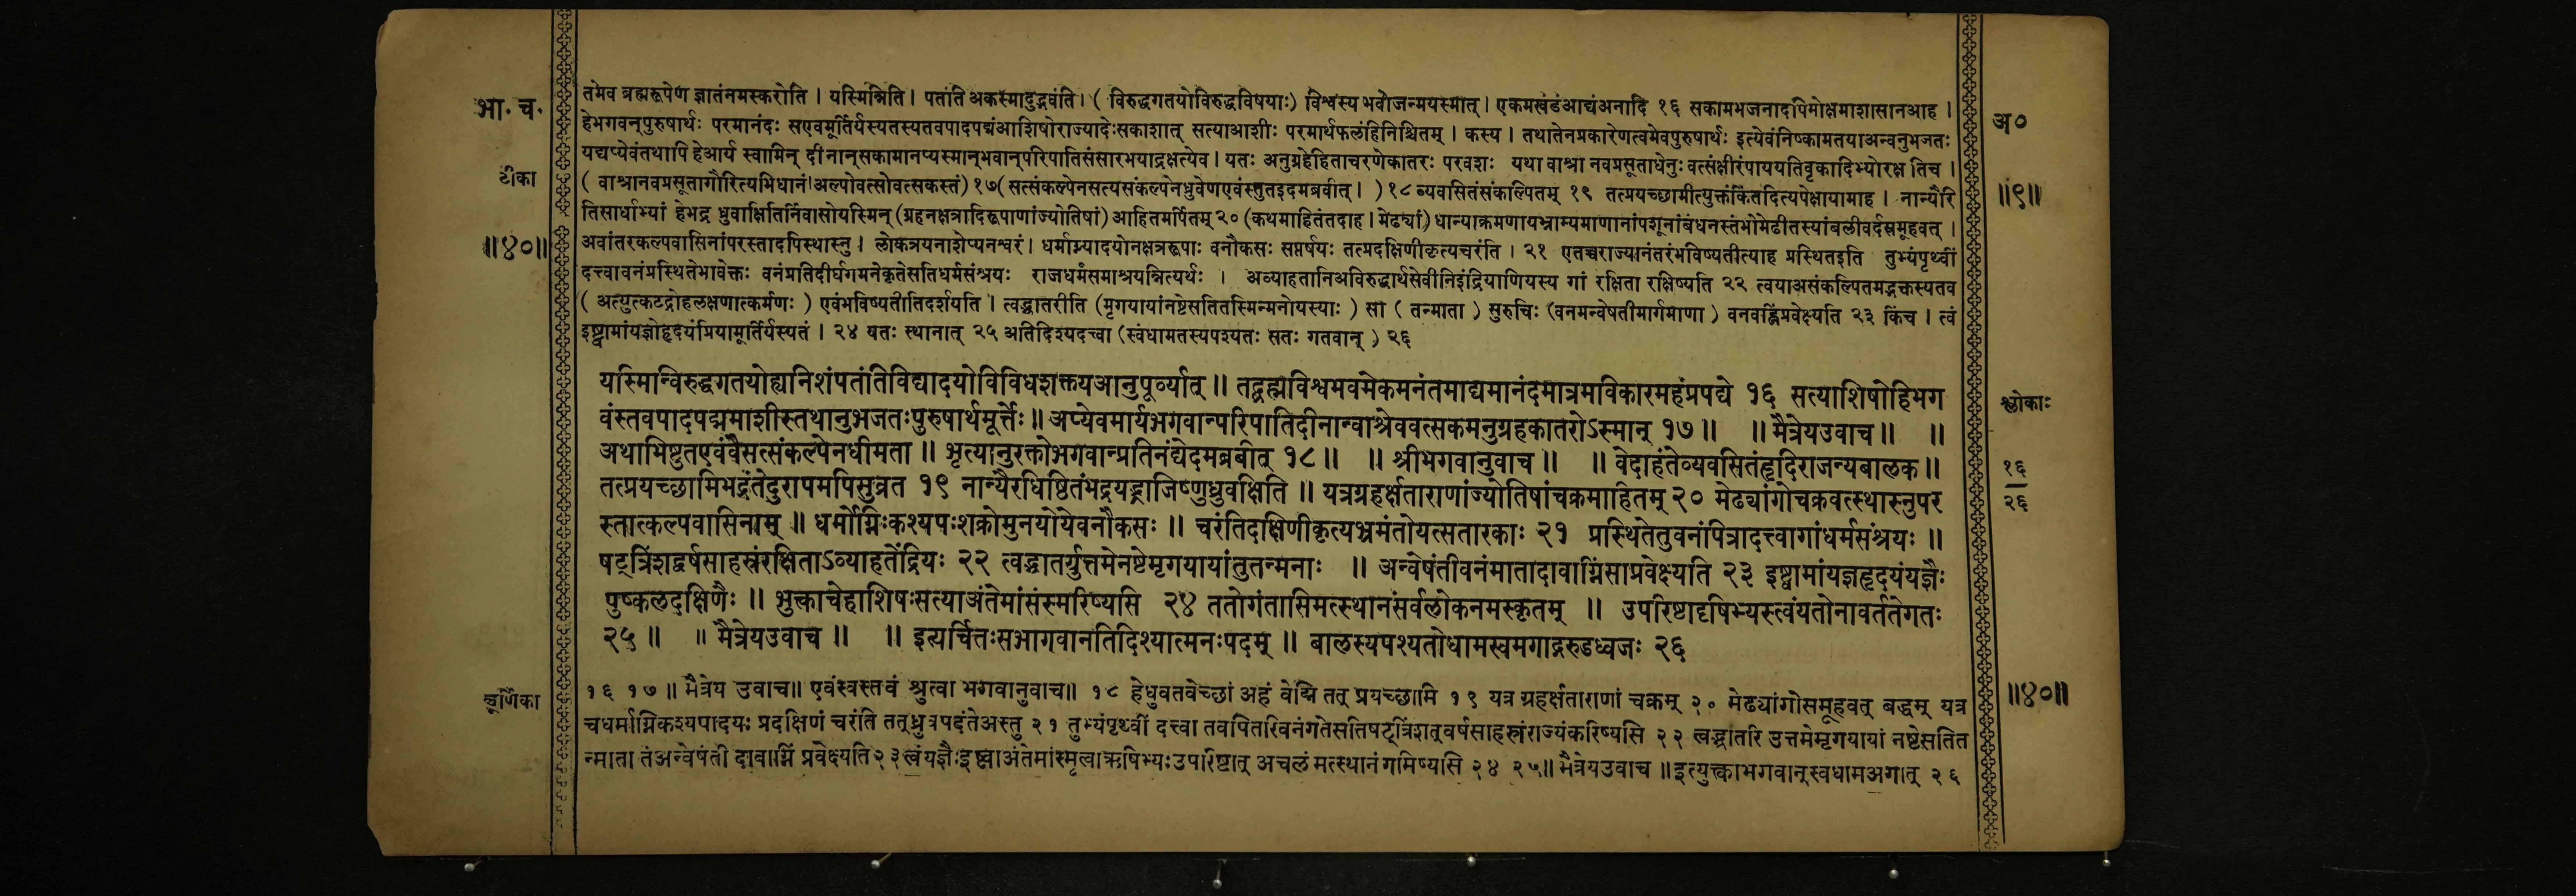 भा. च.
टीका
॥४०॥
तमेव ब्रह्मरूपेण ज्ञातंनमस्करोति । यस्मिन्निति । पतंति अकस्मादुद्भवंति । ( विरुद्धगतयोविरुद्धविषयाः) विश्वस्य भवोजन्मयस्मात् । एकमखंडंआद्यंअनादि १६ सकामभजनादपिमोक्षमाशासानआह ।
हेभगवन्पुरुषार्थः परमानंदः सएवमूर्तिर्यस्यतस्यतवपादपद्मंआशिषोराज्यादेःसकाशात् सत्याआशीः परमार्थफलंहिनिश्चितम् । कस्य । तथातेनप्रकारेणत्वमेवपुरुषार्थः इत्येवंनिष्कामतयाअन्वनुभजतः
यद्यप्येवंतथापि हेआर्य स्वामिन् दीनान्सकामानप्यस्मान्भवान्परिपातिसंसारभयाद्रक्षत्येव । यतः अनुग्रहेहिताचरणेकातरः परवशः यथा वाश्रा नवप्रसूताधेनुः वत्संक्षीरंपाययतिवृकादिभ्योरक्ष तिच ।
( वाश्रानवप्रसूतागौरित्यभिधानं।अल्पोवत्सोवत्सकस्तं) १७(सत्संकल्पेनसत्यसंकल्पेनध्रुवेणएवंस्तुतइदमब्रवीत् । )१८ व्यवासितंसंकल्पितम् १९ तत्प्रयच्छामीत्युक्तंकिंतदित्यपेक्षायामाह । नान्यैरि
तिसार्धाभ्यां हेभद्र ध्रुवाक्षितिर्निवासोयस्मिन् (ग्रहनक्षत्रादिरूपाणांज्योतिषां) आहितमर्पितम् २० (कथमाहितंतदाह । मेढ्यां) धान्याक्रमणायभ्राम्यमाणानांपशूनांबंधनस्तंभोमेढीतस्यांबलीवर्दसमूहवत् ।
अवांतरकल्पवासिनांपरस्तादपिस्थास्नु । लोकत्रयनाशेप्यनश्वरं । धर्माग्न्यादयोनक्षत्ररूपाः वनौकसः सप्तर्षयः तत्प्रदक्षिणीकृत्यचरंति । २१ एतच्चराज्यानंतरंभविष्यतीत्याह प्रस्थितइति तुभ्यंपृथ्वीं
दत्त्वावनंप्रस्थितेभावेक्तः वनंप्रतिदीर्घगमनेकृतेसतिधर्मसंश्रयः राजधर्मंसमाश्रयन्नित्यर्थः । अव्याहतानिअविरुद्धार्थसेवीनिइंद्रियाणियस्य गां रक्षिता रक्षिष्यति २२ त्वयाअसंकल्पितमद्भक्तस्यतव
( अत्युत्कटद्रोहलक्षणात्कर्मणः ) एवंभविष्यतीतिदर्शयति । त्वद्भातरीति (मृगयायांनष्टेसतितस्मिन्मनोयस्याः ) सा ( तन्माता ) सुरुचिः (वनमन्वेषतीमार्गमाणा ) वनवह्निंप्रवेक्ष्यति २३ किंच । त्वं
इष्ट्वामांयज्ञोहृदयंप्रियामूर्तिर्यस्यतं । २४ यतः स्थानात् २५ अतिदिश्यदत्त्वा (स्वंधामतस्यपश्यतः सतः गतवान् ) २६
यस्मिन्विरुद्धगतयोह्यनिशंपतंतिविद्यादयोविविधशक्तयआनुपूर्व्यात् ॥ तद्ब्रह्मविश्वभवमेकमनंतमाद्यमानंदमात्रमविकारमहंप्रपद्ये १६ सत्याशिषोहिभग
वंस्तवपादपद्ममाशीस्तथानुभजतःपुरुषार्थमूर्त्तेः ॥ अप्येवमार्यभगवान्परिपातिदीनान्वाश्रेववत्सकमनुग्रहकातरोऽस्मान् १७ ॥ ॥ मैत्रेयउवाच ॥ ॥
अथाभिष्टुतएवंवैसत्संकल्पेनधीमता ॥ भृत्यानुरक्तोभगवान्प्रतिनंद्येदमब्रवीत् १८ ॥ ॥ श्रीभगवानुवाच ॥ ॥ वेदाहंतेव्यवसितंहृदिराजन्यबालक ॥
तत्प्रयच्छामिभद्रंतेदुरापमपिसुव्रत १९ नान्यैरधिष्ठितंभद्रयद्भ्राजिष्णुध्रुवक्षिति ॥ यत्रग्रहर्क्षताराणांज्योतिषांचक्रमाहितम् २० मेढ्यांगोचक्रवत्स्थास्नुपर
स्तात्कल्पवासिनाम् ॥ धर्मोग्निःकश्यपःशक्रोमुनयोयेवनौकसः ॥ चरंतिदक्षिणीकृत्यभ्रमंतोयत्सतारकाः २१ प्रस्थितेतुवनंपित्रादत्त्वागांधर्मसंश्रयः ॥
षट्त्रिंशद्वर्षसाहस्रंरक्षिताऽव्याहतेंद्रियः २२ त्वद्भातर्युत्तमेनष्टेमृगयायांतुतन्मनाः ॥ अन्वेषंतीवनंमातादावाग्निंसाप्रवेक्ष्यति २३ इष्ट्वामांयज्ञहृदयंयज्ञैः
पुष्कलदक्षिणैः ॥ भुक्त्वाचेहाशिषःसत्याअंतेमांसंस्मरिष्यसि २४ ततोगंतासिमत्स्थानंसर्वलोकनमस्कृतम् ॥ उपरिष्टादृषिभ्यस्त्वंयतोनावर्ततेगतः
२५ ॥ ॥ मैत्रेयउवाच ॥ ॥ इत्यर्चितःसभगवानतिदिश्यात्मनःपदम् ॥ बालस्यपश्यतोधामस्वमगाद्गरुडध्वजः २६
चूर्णिका
१६ १७ ॥ मैत्रेय उवाच॥ एवंस्वस्तवं श्रुत्वा भगवानुवाच॥ १८ हेध्रुवतवेच्छां अहं वेद्मि तत् प्रयच्छामि १९ यत्र ग्रहर्क्षताराणां चक्रम् २० मेढ्यांगोसमूहवत् बद्धम् यत्र
चधर्माग्निकश्यपादयः प्रदक्षिणं चरंति तत्ध्रुवपदंतेअस्तु २१ तुभ्यंपृथ्वीं दत्त्वा तवपितरिवनंगतेसतिषट्त्रिंशत्वर्षसाहस्रंराज्यंकरिष्यसि २२ त्वद्भ्रातरि उत्तमेमृगयायां नष्टेसतित
न्माता तंअन्वेषंती दावाग्निं प्रवेक्ष्यति२३त्वंयज्ञैःइष्ट्वाअंतेमांस्मृत्वाऋषिभ्यःउपरिष्टात् अचलं मत्स्थानं गमिष्यसि २४ २५॥ मैत्रेयउवाच ॥इत्युक्त्वाभगवान्स्वधामअगात् २६
अ०
॥९॥
श्लोकाः
१६
२६
॥४०॥